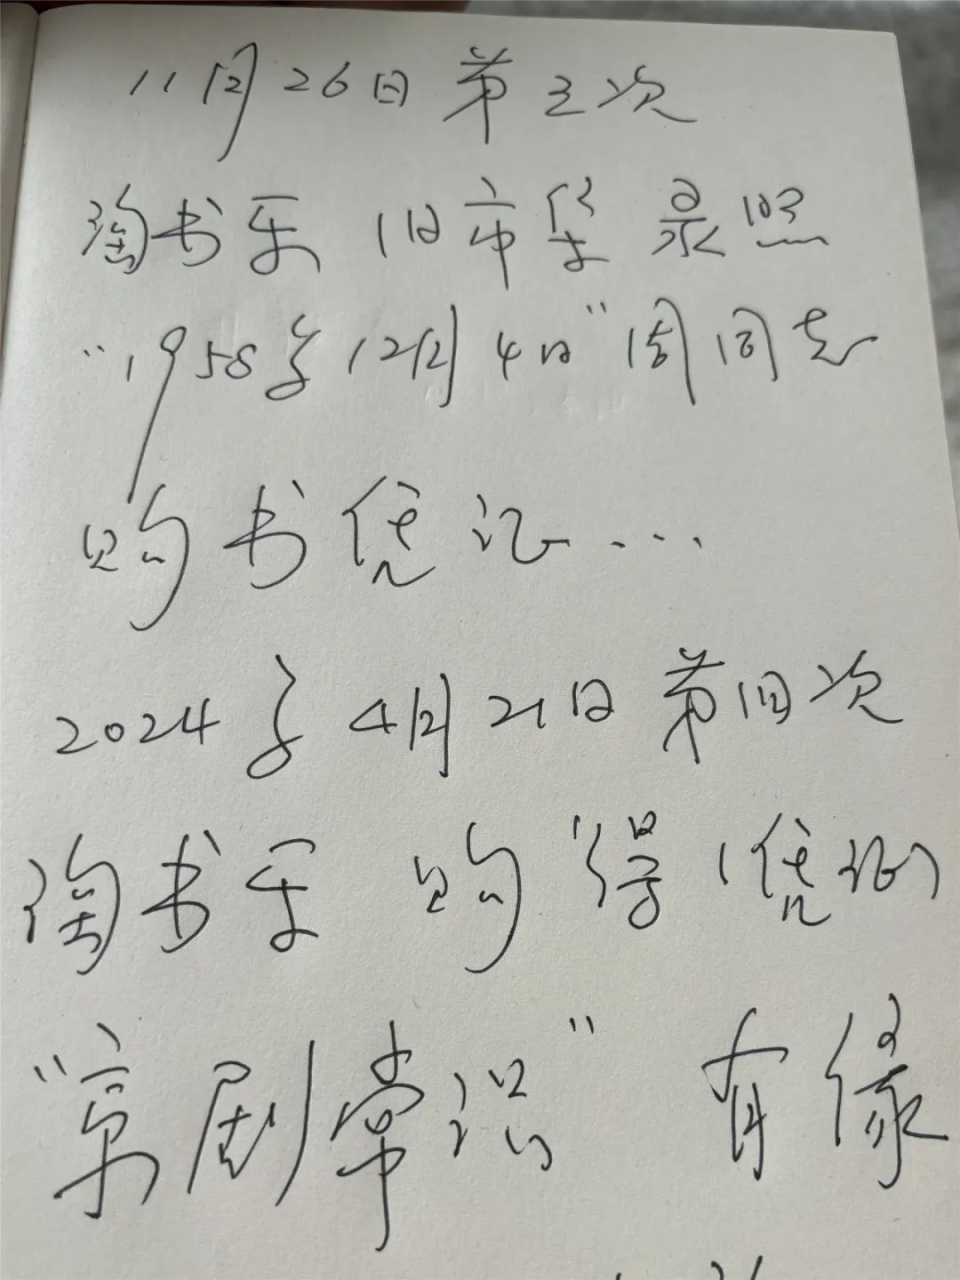 11月26日第三次
淘书乐旧市集录照
“1958年12月4日”周同志
购书凭证...
2024年4月21日第四次
淘书乐购得《凭证》
“京剧常识”有缘